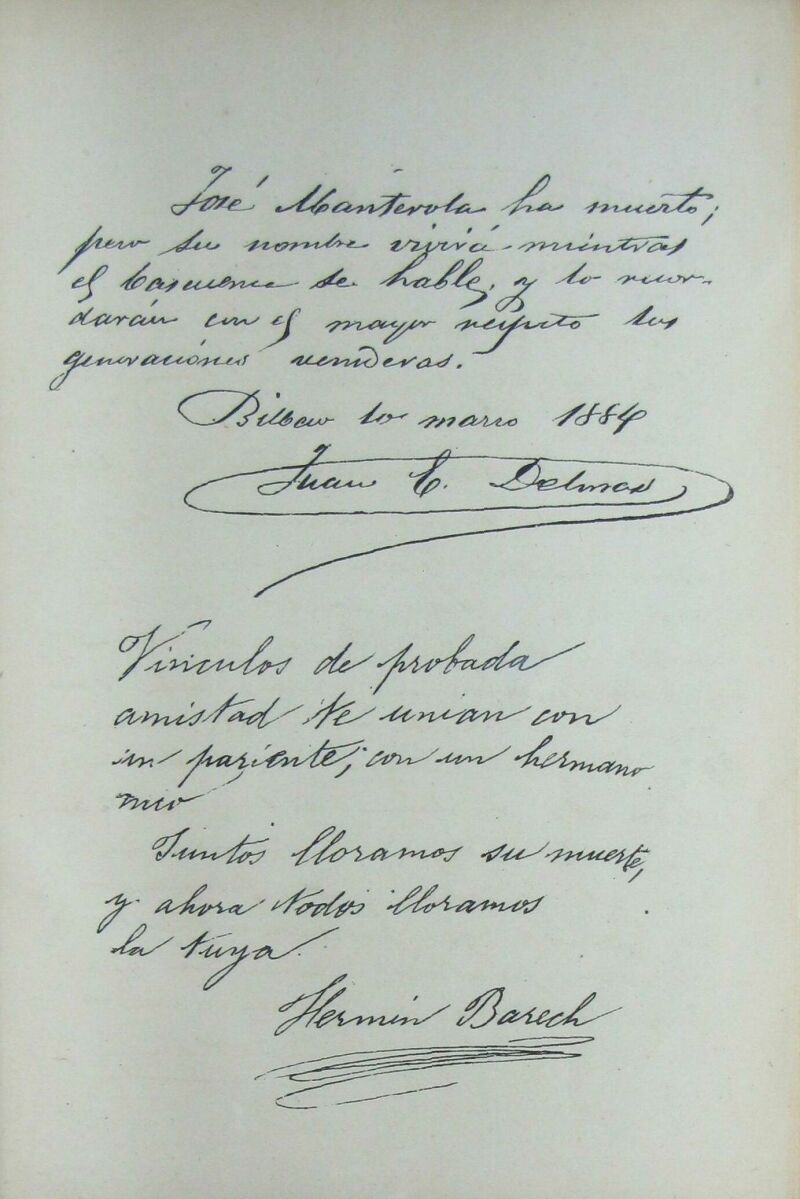 José Manterola ha muerto;
pero su nombre vivirá mientras
el bascuence se hable, y lo recor-
darán con el mayor respeto las
generaciónes venideras.
Bilbao 1o marzo 1884
Juan E. Delmas
Vínculos de probada
amistad te unian con
un pariente; con un hermano
mio
Juntos lloramos su muerte,
y ahora todos lloramos
la tuya.
Hermin Barech